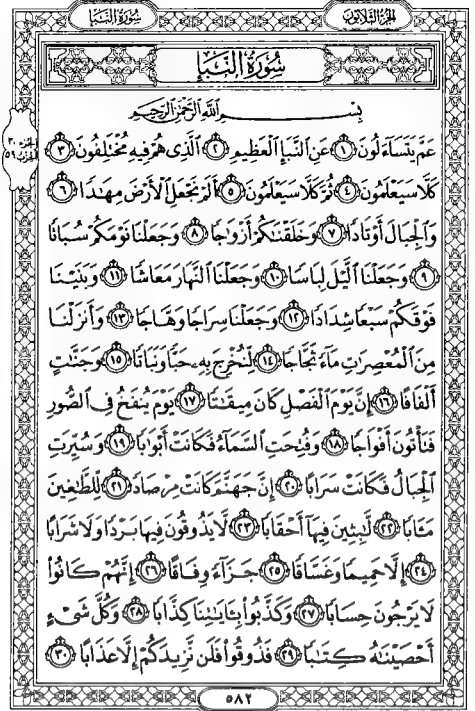 الجزء الثلاثون
سورة النبإ
سُورَةُ النَّبَإِ
بِسْمِ اللَّهِ الرَّحْمَٰنِ الرَّحِيمِ
عَمَّ يَتَسَآءَلُونَ ١ عَنِ ٱلنَّبَإِ ٱلْعَظِيمِ ٢ ٱلَّذِى هُمْ فِيهِ مُخْتَلِفُونَ ٣
كَلَّا سَيَعْلَمُونَ ٤ ثُمَّ كَلَّا سَيَعْلَمُونَ ٥ أَلَمْ نَجْعَلِ ٱلْأَرْضَ مِهَٰدًا ٦
وَٱلْجِبَالَ أَوْتَادًا ٧ وَخَلَقْنَٰكُمْ أَزْوَٰجًا ٨ وَجَعَلْنَا نَوْمَكُمْ سُبَاتًا
٩ وَجَعَلْنَا ٱلَّيْلَ لِبَاسًا ١٠ وَجَعَلْنَا ٱلنَّهَارَ مَعَاشًا ١١ وَبَنَيْنَا
فَوْقَكُمْ سَبْعًا شِدَادًا ١٢ وَجَعَلْنَا سِرَاجًا وَهَّاجًا ١٣ وَأَنزَلْنَا
مِنَ ٱلْمُعْصِرَٰتِ مَآءً ثَجَّاجًا ١٤ لِّنُخْرِجَ بِهِۦ حَبًّا وَنَبَاتًا ١٥ وَجَنَّٰتٍ
أَلْفَافًا ١٦ إِنَّ يَوْمَ ٱلْفَصْلِ كَانَ مِيقَٰتًا ١٧ يَوْمَ يُنفَخُ فِى ٱلصُّورِ
فَتَأْتُونَ أَفْوَاجًا ١٨ وَفُتِحَتِ ٱلسَّمَآءُ فَكَانَتْ أَبْوَٰبًا ١٩ وَسُيِّرَتِ
ٱلْجِبَالُ فَكَانَتْ سَرَابًا ٢٠ إِنَّ جَهَنَّمَ كَانَتْ مِرْصَادًا ٢١ لِّلطَّٰغِينَ
مَـَٔابًا ٢٢ لَّٰبِثِينَ فِيهَآ أَحْقَابًا ٢٣ لَّا يَذُوقُونَ فِيهَا بَرْدًا وَلَا شَرَابًا
٢٤ إِلَّا حَمِيمًا وَغَسَّاقًا ٢٥ جَزَآءً وِفَاقًا ٢٦ إِنَّهُمْ كَانُوا۟
لَا يَرْجُونَ حِسَابًا ٢٧ وَكَذَّبُوا۟ بِـَٔايَٰتِنَا كِذَّابًا ٢٨ وَكُلَّ شَىْءٍ
أَحْصَيْنَٰهُ كِتَٰبًا ٢٩ فَذُوقُوا۟ فَلَن نَّزِيدَكُمْ إِلَّا عَذَابًا ٣٠
٥٨٢